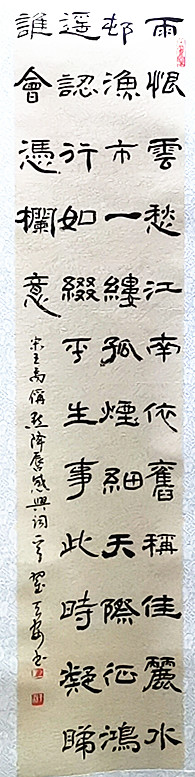 雨恨雲愁江南依舊稱佳麗水
邨漁市一縷孤煙細天際征鴻
遥認行如綴平生事此時凝睇
誰會憑欄意
宋王禹偁點絳唇感興詞